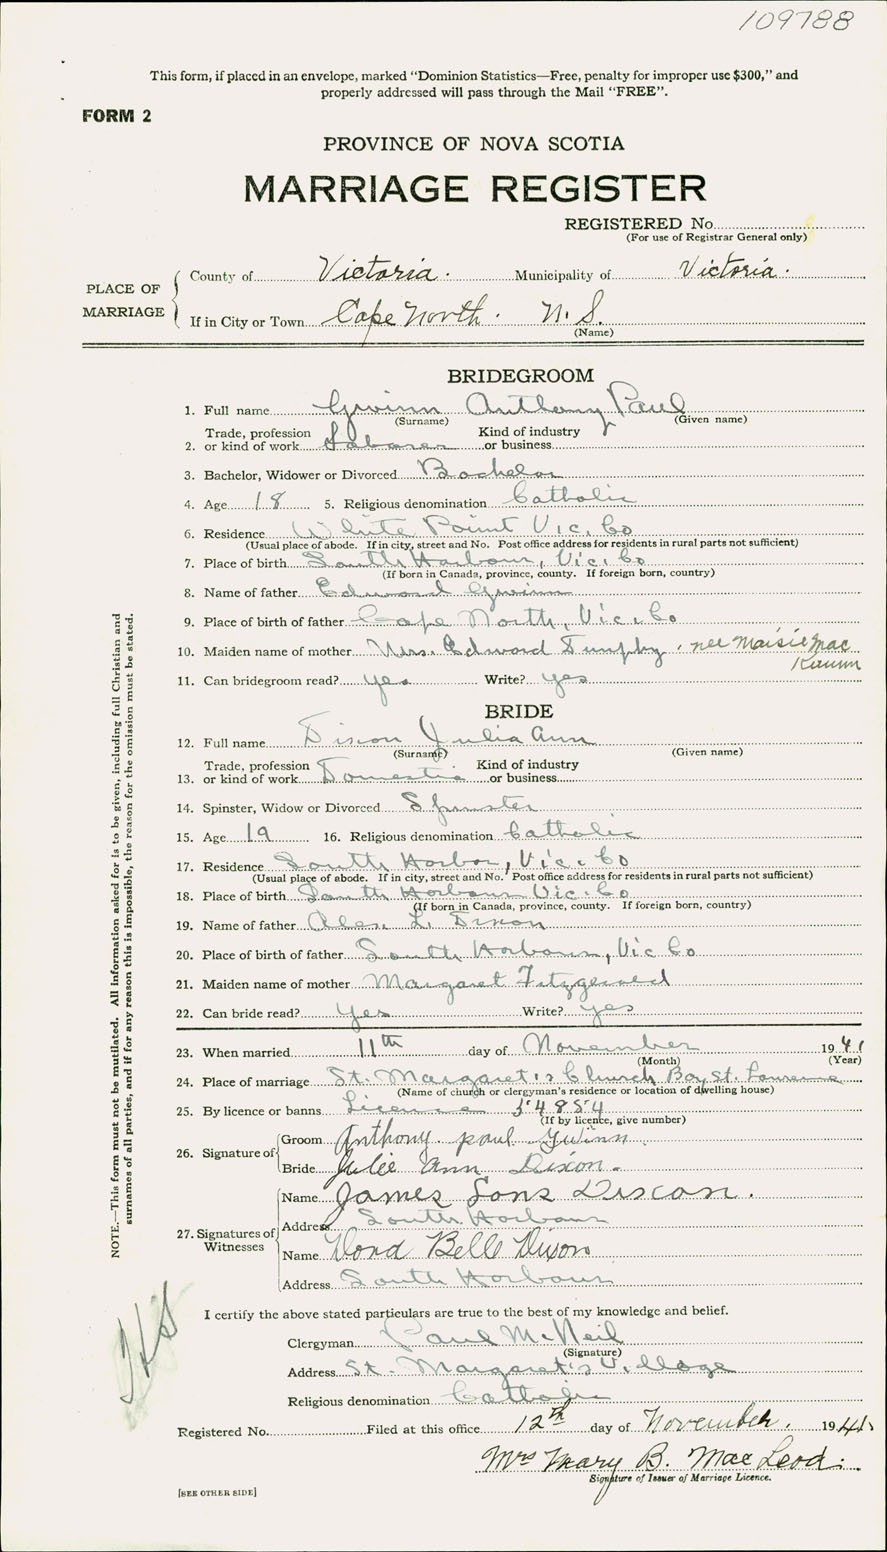 109788
This form, if placed in an envelope, marked "Dominion Statistics—Free, penalty for improper use $300," and
properly addressed will pass through the Mail "FREE".
FORM 2
PROVINCE OF NOVA SCOTIA
MARRIAGE REGISTER
REGISTERED No.
(For use of Registrar General only)
PLACE OF MARRIAGE
County of Victoria. Municipality of Victoria.
If in City or Town Cape North. N.S.
(Name)
BRIDEGROOM
1. Full name Gwinn Anthony Paul
(Surname) (Given name)
2. Trade, profession or kind of work Laborer Kind of industry or business
3. Bachelor, Widower or Divorced Bachelor
4. Age 18 5. Religious denomination Catholic
6. Residence White Point Vic. Co
(Usual place of abode. If in city, street and No. Post office address for residents in rural parts not sufficient)
7. Place of birth South Harbour, Vic. Co
(If born in Canada, province, county. If foreign born, country)
8. Name of father Edmond Gwinn
9. Place of birth of father Cape North, Vic. Co
10. Maiden name of mother Mrs. Edward Dunphy. nee Maisie Mac
11. Can bridegroom read? yes Write? yes
BRIDE
12. Full name Dixon Julia Ann
(Surname) (Given name)
13. Trade, profession or kind of work Domestic Kind of industry or business
14. Spinster, Widow or Divorced Spinster
15. Age 19 16. Religious denomination Catholic
17. Residence South Harbor, Vic. Co
(Usual place of abode. If in city, street and No. Post office address for residents in rural parts not sufficient)
18. Place of birth South Harbour Vic. Co
(If born in Canada, province, county. If foreign born, country)
19. Name of father Alex. L. Dixon
20. Place of birth of father South Harbour, Vic Co
21. Maiden name of mother Margaret Fitzgerald
22. Can bride read? Yes Write? yes
23. When married 11th day of November 1941
(Month) (Year)
24. Place of marriage St. Margaret's Church Bay St. Lawrence
(Name of church or clergyman's residence or location of dwelling house)
25. By licence or banns Licence 54854
(If by licence, give number)
26. Signature of
Groom Anthony paul Gwinn
Bride Julie Ann Dixon.
27. Signatures of Witnesses
Name James Dixcon.
Address South Harbour
Name Belle Dixon
Address South Harbour
I certify the above stated particulars are true to the best of my knowledge and belief.
Clergyman Paul McNeil
(Signature)
Address St. Margaret's Village
Religious denomination Catholic
Registered No. Filed at this office 12th day of November. 1941
Mrs Mary B. MacLeod.
Signature of Issuer of Marriage Licence.
[SEE OTHER SIDE]
NOTE.—This form must not be mutilated. All information asked for is to be given, including full Christian and
surnames of all parties, and if for any reason this is impossible, the reason for the omission must be stated.